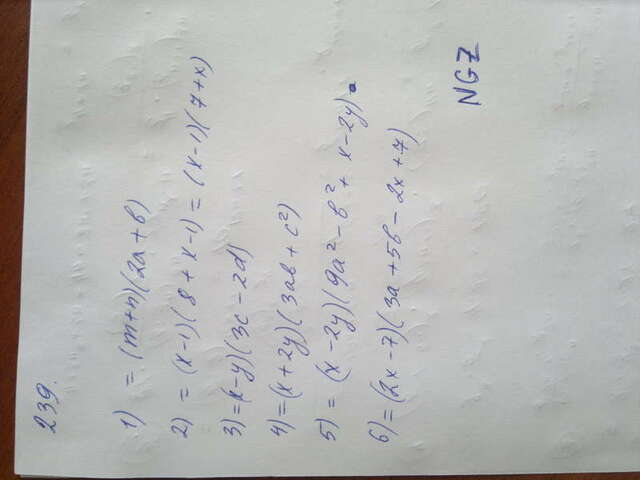 239.
1) = (m+n)(2a+b)
2) = (x-1)(8+x-1) = (x-1)(7+x)
3) = (x-y)(3c-2d)
4) = (x+2y)(3ab+c²)
5) = (x-2y)(9a²-b²+x-2y)
6) = (2x-7)(3a+5b-2x+7)
NGZ